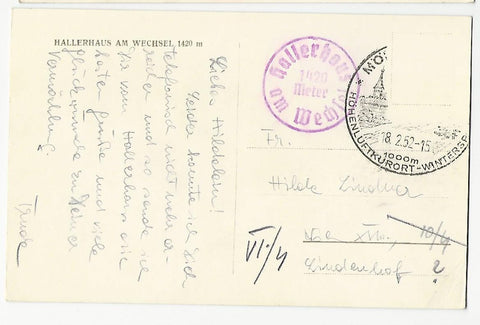 HALLERHAUS AM WECHSEL 1420 m
Liebes Hilderl!
Leider konnte ich Dich
telefonisch nicht mehr er-
reichen und so sende ich
Dir vom Hallerhaus die
besten Grüße und viele
Glückwünsche zu Deiner
Vermählung.
Trude
Hallerhaus
1420
Meter
am Wechsel
18.2.52-15
1000m
HÖHENLUFTKURORT-WINTERSP
Fr.
Hilde Lindner
Wien
10/4
VI/4
Lindenhof ?